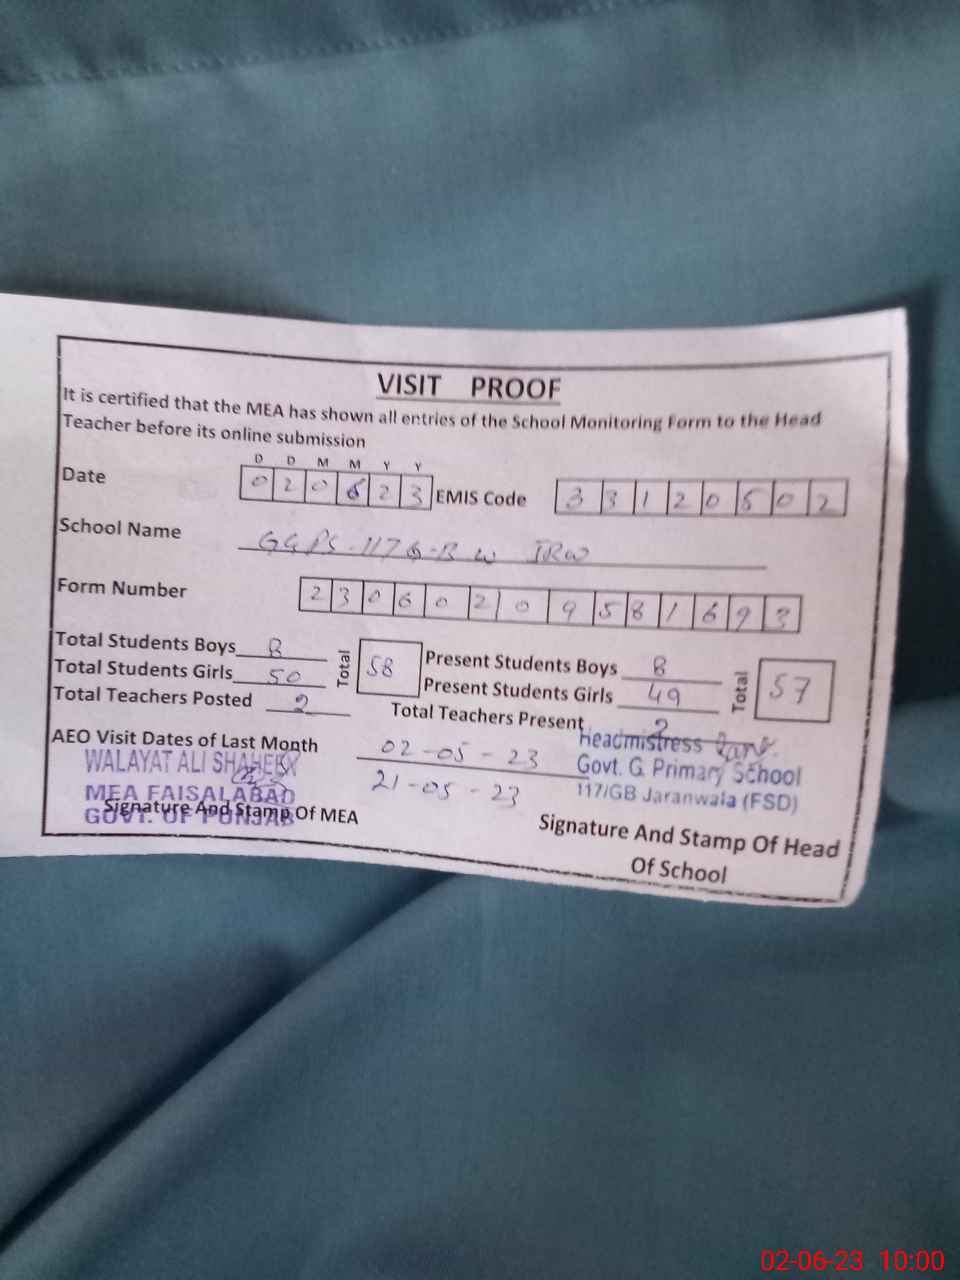 VISIT PROOF
It is certified that the MEA has shown all entries of the School Monitoring Form to the Head
Teacher before its online submission
D D M M Y Y
Date 0 2 0 6 2 3 EMIS Code 3 3 1 2 0 5 0 2
School Name GGPS. 117 G-B W
Form Number 2 3 0 6 0 2 0 9 5 8 1 6 9 3
Total Students Boys 8 Total 58 Present Students Boys 8 Total 57
Total Students Girls 50 Present Students Girls 49
Total Teachers Posted 2 Total Teachers Present 2
AEO Visit Dates of Last Month 02-05-23
21-05-23
WALAYAT ALI SHAHEEN
MEA FAISALABAD
GOVT. OF PUNJAB
Signature And Stamp Of MEA
Headmistress
Govt. G. Primary School
117/GB Jaranwala (FSD)
Signature And Stamp Of Head
Of School
02-06-23 10:00